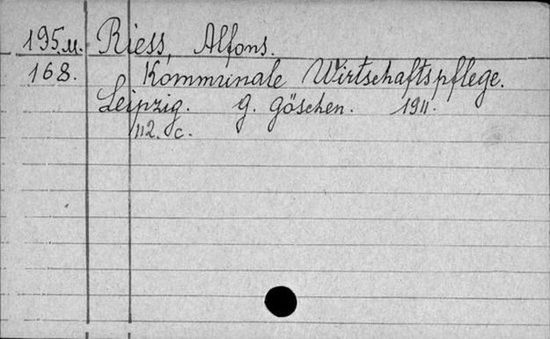 195.M. Riess, Alfons.
168. Kommunale Wirtschaftspflege.
Leipzig. G. Göschen. 1911.
112. c.